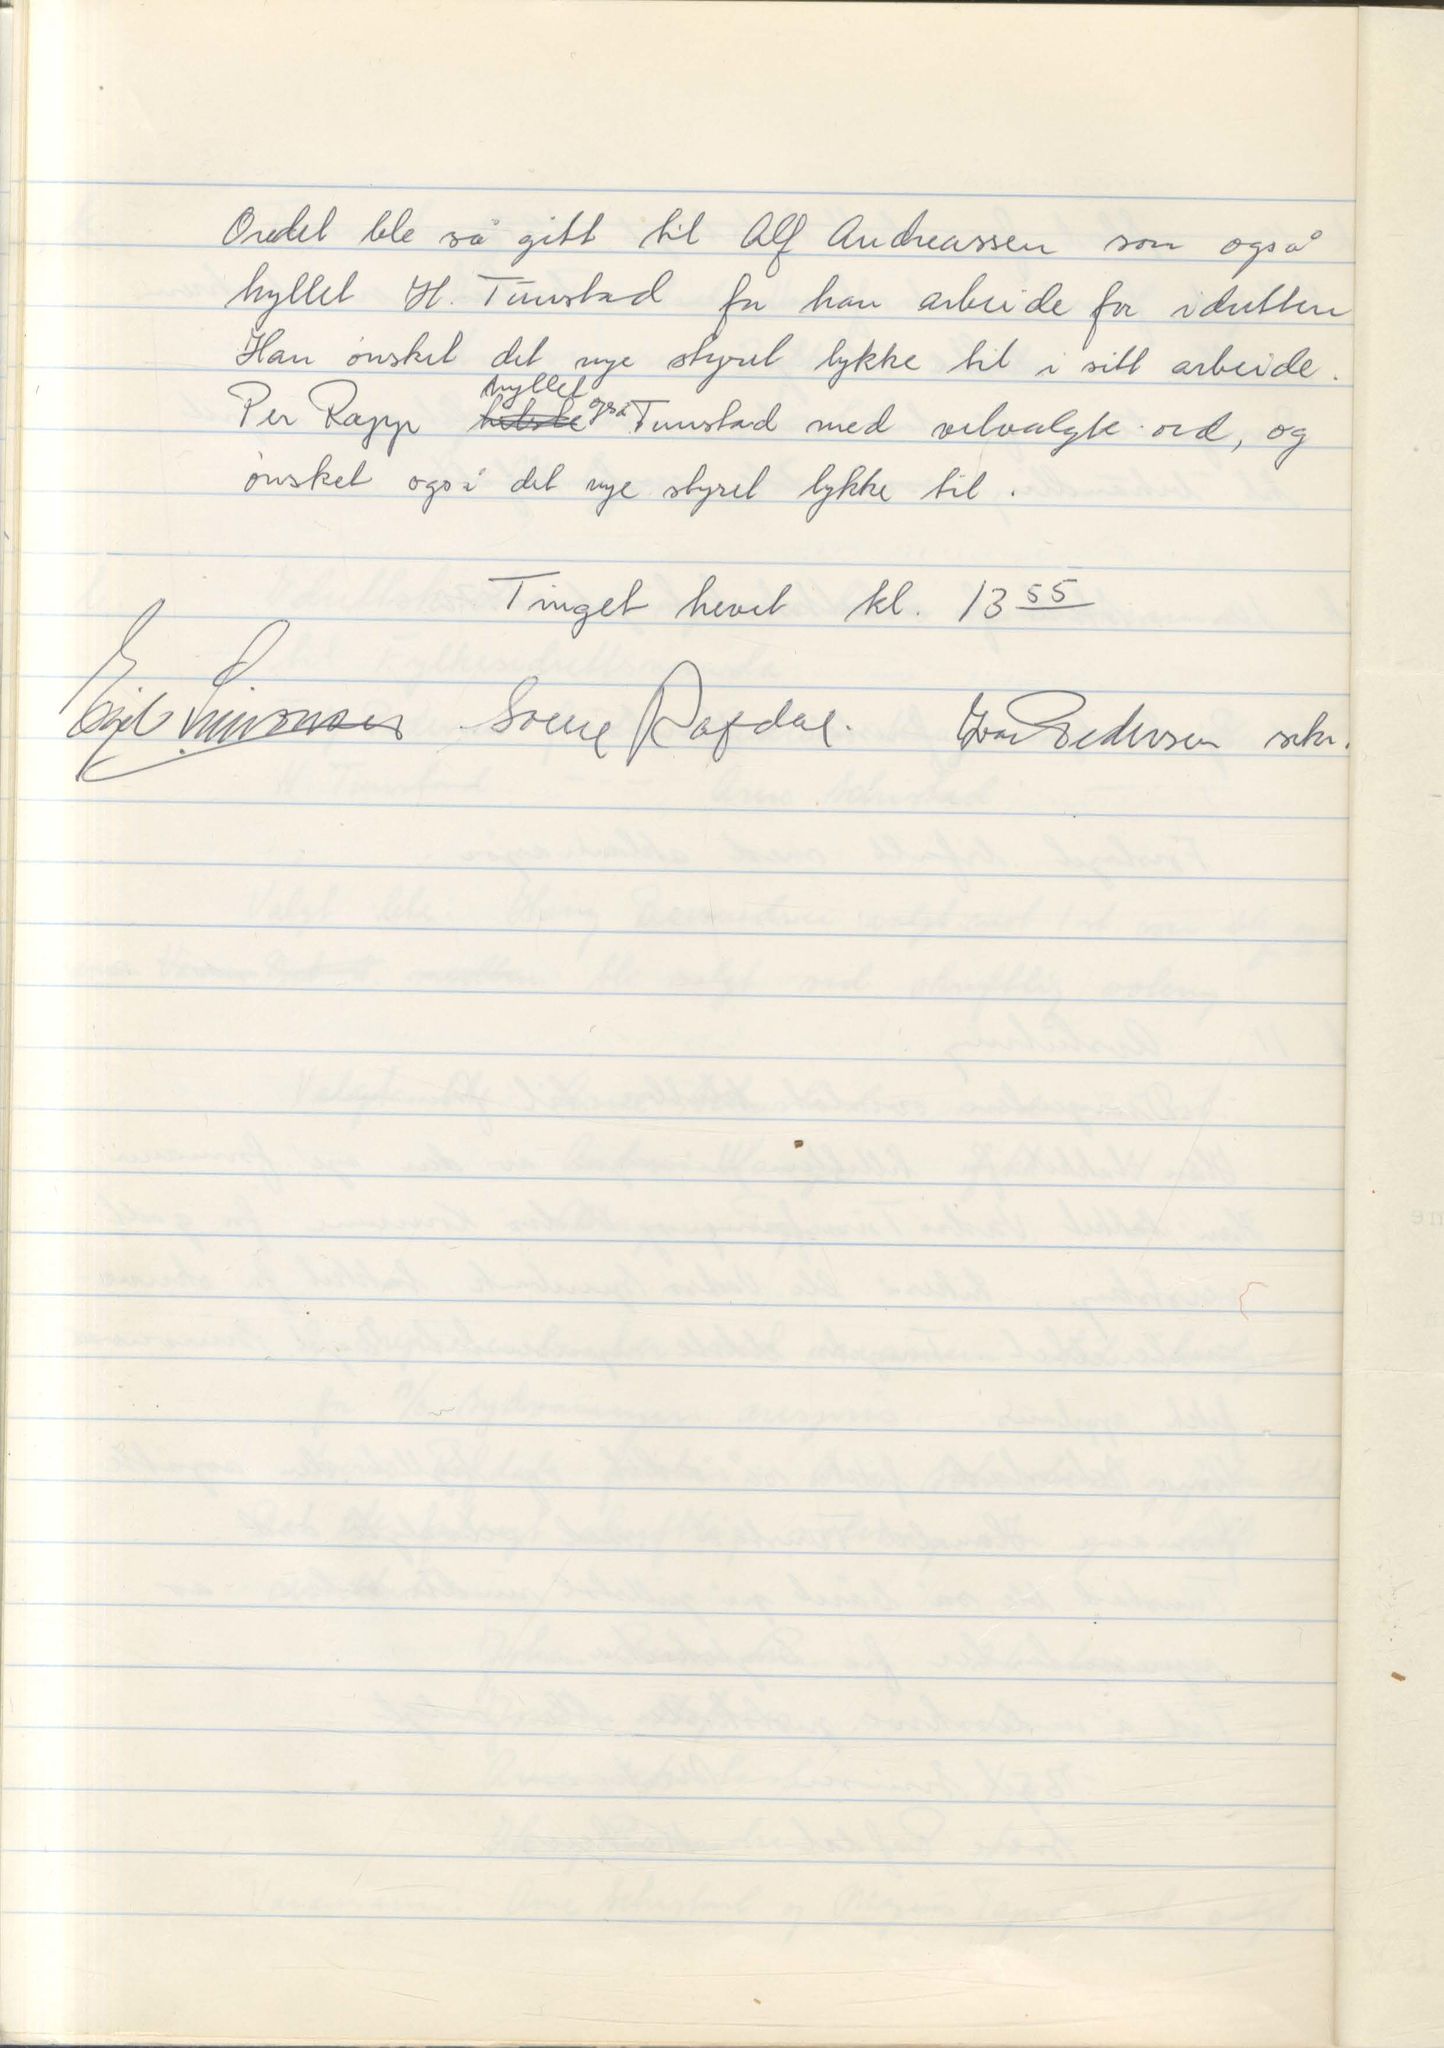 Ordet ble så gitt til Alf Andreassen som også
hyllet H. Tunstad for han arbeide for idretten
Han ønsket det nye styret lykke til i sitt arbeide.
Per Rapp hyllet også Tunstad med velvalgte ord, og
ønsket også det nye styret lykke til.
Tinget hevet kl. 13 55
Egil Simonsen Sverre Rafdal. Ivar Pedersen sekr.